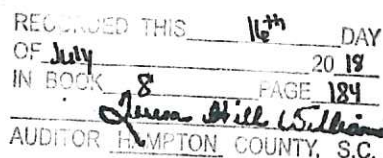 RECORDED THIS 16th DAY
OF July 20 18
IN BOOK 8 PAGE 184
Hill Williams
AUDITOR HAMPTON COUNTY, S.C.